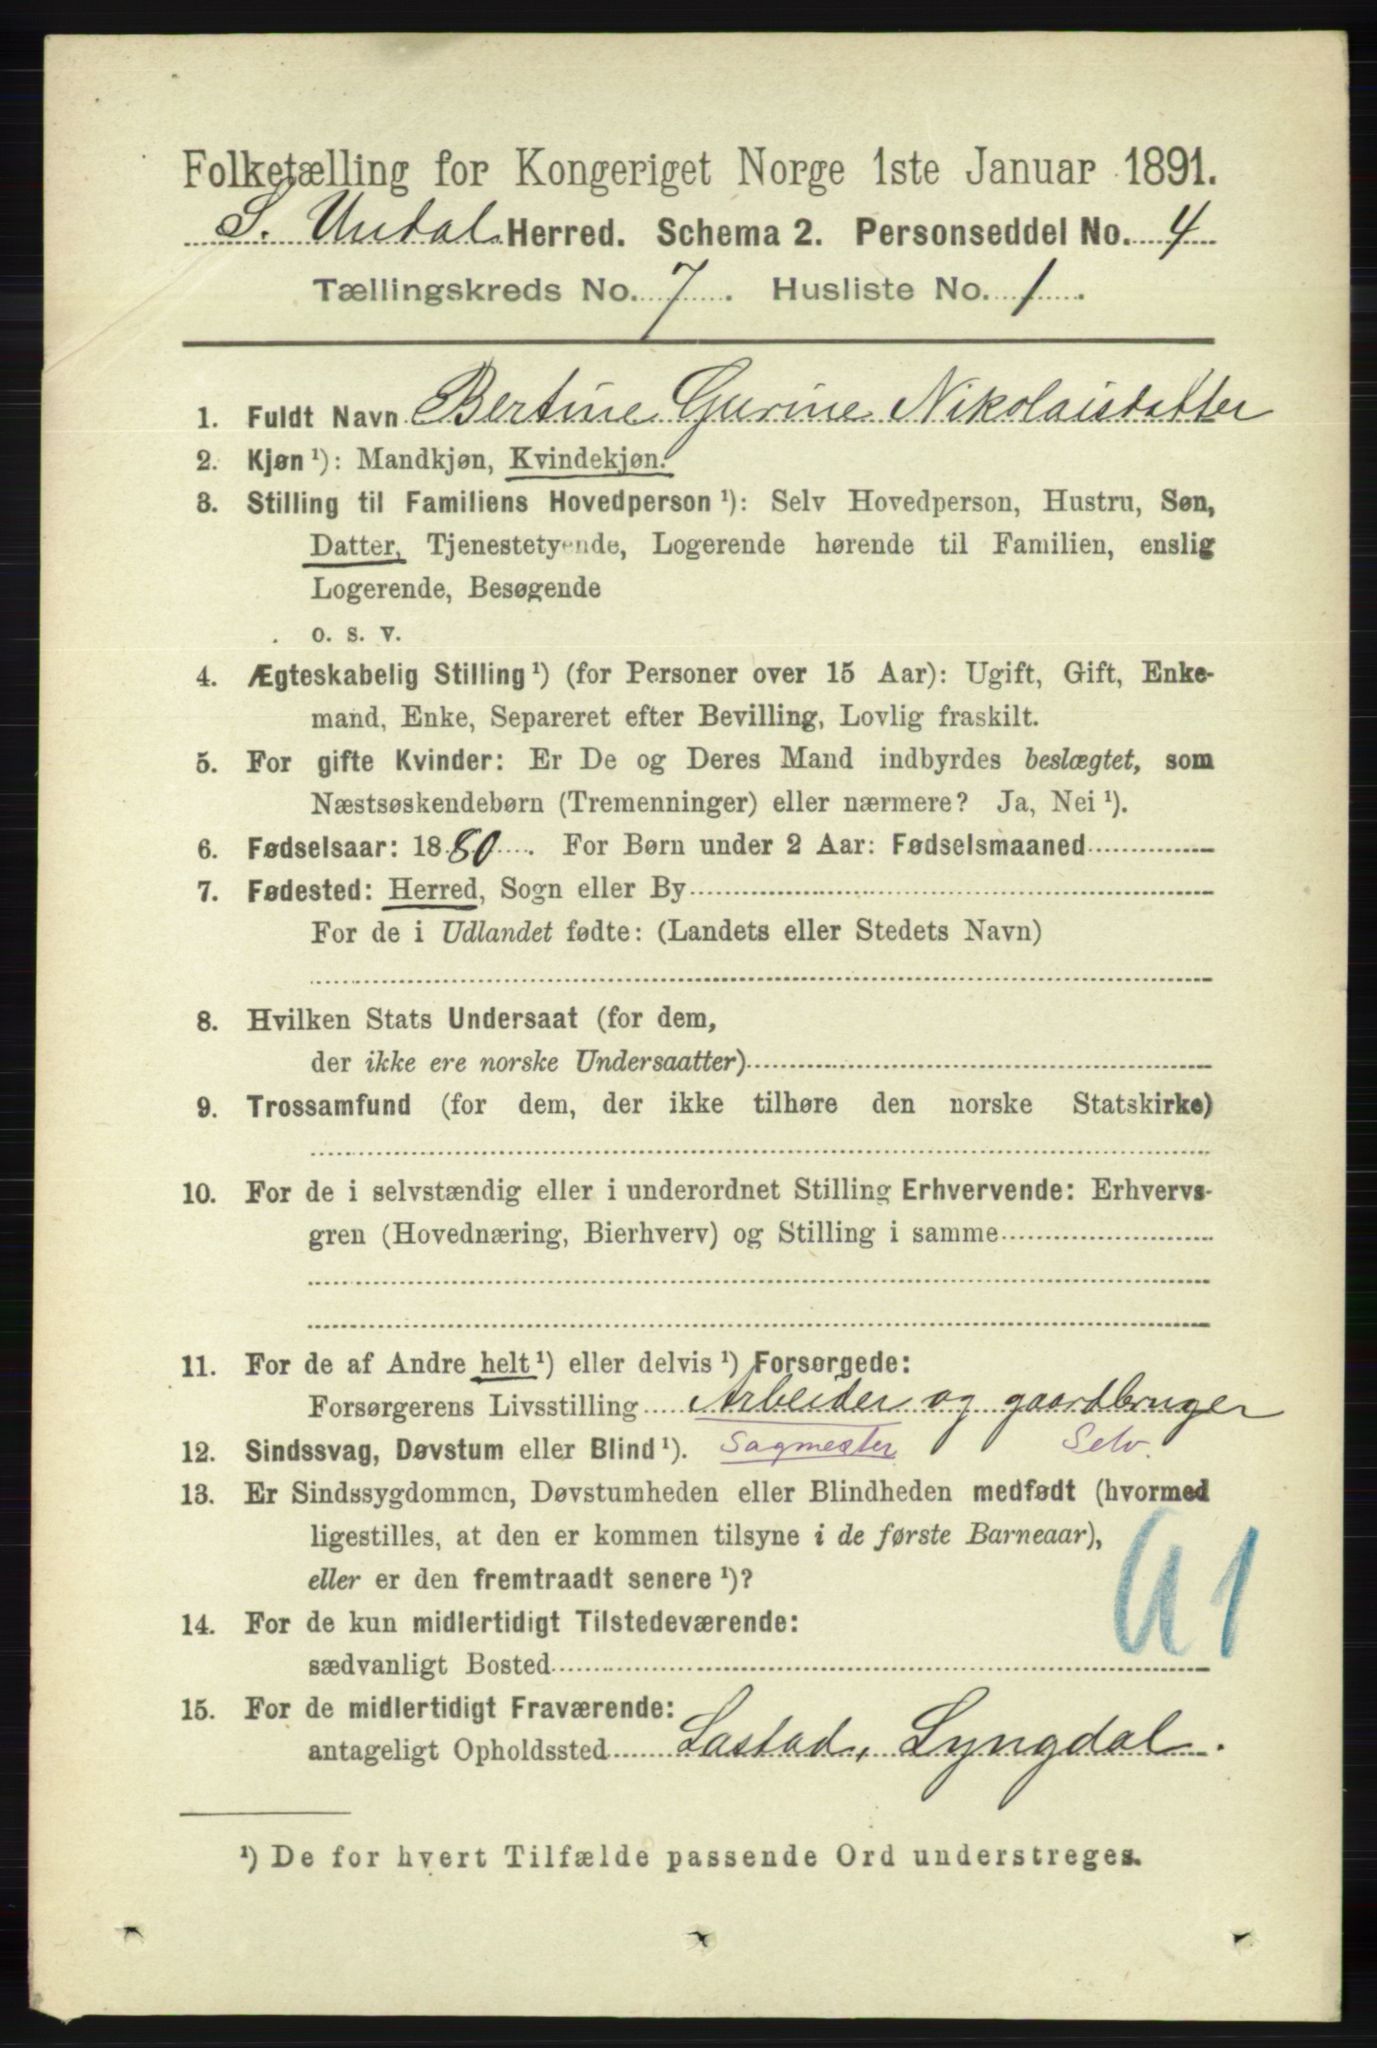 Folketælling for Kongeriget Norge 1ste Januar 1891.
S. Undal Herred. Schema 2. Personseddel No. 4
Tællingskreds No. 7. Husliste No. 1.
1. Fuldt Navn Bertine Gurine Nikolaisdatter
2. Kjøn ¹): Mandkjøn, Kvindekjøn.
3. Stilling til Familiens Hovedperson ¹): Selv Hovedperson, Hustru, Søn,
Datter, Tjenestetyende, Logerende hørende til Familien, enslig
Logerende, Besøgende
o. s. v.
4. Ægteskabelig Stilling ¹) (for Personer over 15 Aar): Ugift, Gift, Enke-
mand, Enke, Separeret efter Bevilling, Lovlig fraskilt.
5. For gifte Kvinder: Er De og Deres Mand indbyrdes beslægtet, som
Næstsøskendebørn (Tremenninger) eller nærmere? Ja, Nei ¹).
6. Fødselsaar: 1880. For Børn under 2 Aar: Fødselsmaaned
7. Fødested: Herred, Sogn eller By
For de i Udlandet fødte: (Landets eller Stedets Navn)
8. Hvilken Stats Undersaat (for dem,
der ikke ere norske Undersaatter)
9. Trossamfund (for dem, der ikke tilhøre den norske Statskirke)
10. For de i selvstændig eller i underordnet Stilling Erhvervende: Erhvervs-
gren (Hovednæring, Bierhverv) og Stilling i samme
11. For de af Andre helt ¹) eller delvis ¹) Forsørgede:
Forsørgerens Livsstilling Arbeider og gaardbruger
12. Sindssvag, Døvstum eller Blind ¹). Sagmester Selv.
13. Er Sindssygdommen, Døvstumheden eller Blindheden medfødt (hvormed
ligestilles, at den er kommen tilsyne i de første Barneaar),
eller er den fremtraadt senere ¹)?
14. For de kun midlertidigt Tilstedeværende:
sædvanligt Bosted
15. For de midlertidigt Fraværende:
antageligt Opholdssted Lastad, Lyngdal.
¹) De for hvert Tilfælde passende Ord understreges.